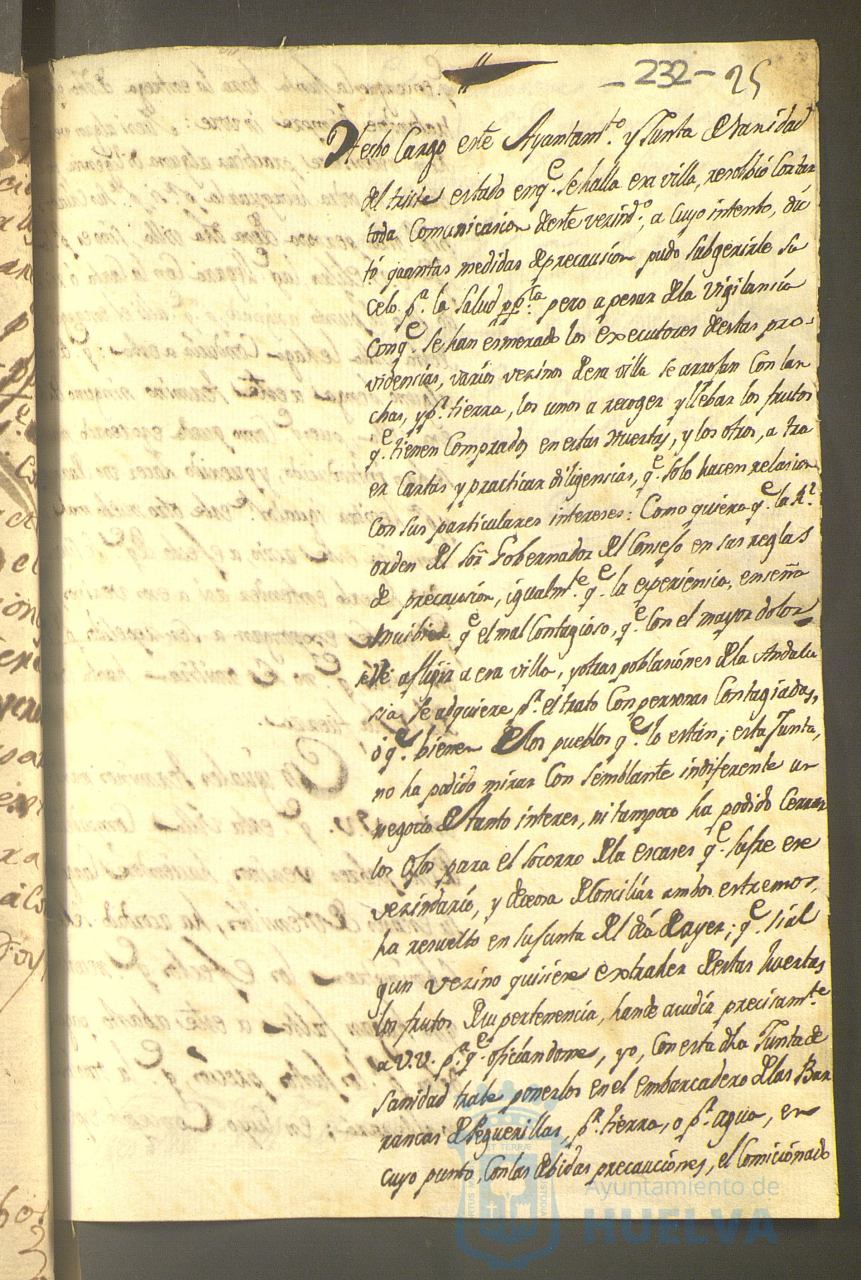 - 232 - 25
Hecho Cargo este Ayuntamto. y Junta de Sanidad
del triste estado enqe. se halla esa villa, resolbió Cortar
toda Comunicasion deste vesindo., a cuyo intento, dic
tó quantas medidas de precausion pudo subgerirle su
celo pa. la salud ppca. pero apesar dela vigilansia
Conqe. se han esmerado los executores destas pro-
videnсias, varios vesinos de esa villa se arrojan con lan
chas, y pr. tierra, los unos a recoger y llebar los frutos
qe. tienen Comprados en estas Huertas, y los otros, a tra
er Cartas y practicar diligencias, qe. solo hacen relasion
con sus particulares intereses: Como quiera qe. la Rl.
orden del Sor. Gobernador del Consejo en sus reglas
de precausion, igualmte. qe. la experiencia, enseña
qe. el mal Contagioso, qe. con el mayor dolor
aflijir a esa villa, y otras poblasiones dela Andalu
sia se adquiere pr. el trato Con personas Contagiadas,
ó qe. bienen de los pueblos qe. lo están; esta Junta,
no ha podido mirar Con semblante indiferente un
negocio de tanto interes, ni tampoco ha podido Cerrar
los Ojos para el socorro dela escases qe. sufre ese
vesindario, y deseosa de Conciliar ambos estremos,
ha resuelto en su Junta del dia de ayer; qe. si al
gun vesino quisiere extraher destas huertas
los frutos de su pertenencia, hande acudir precisamte.
a V.V. pa. qe. oficiandome, yo, Con esta dha Junta de
sanidad trate ponerlos en el embarcadero delas Bar
rancas de Peguerillas, pr. tierra, o pr. agua, en
cuyo punto, Con las debidas precausiones, el Comicionado
Ayuntamiento de
HUELVA